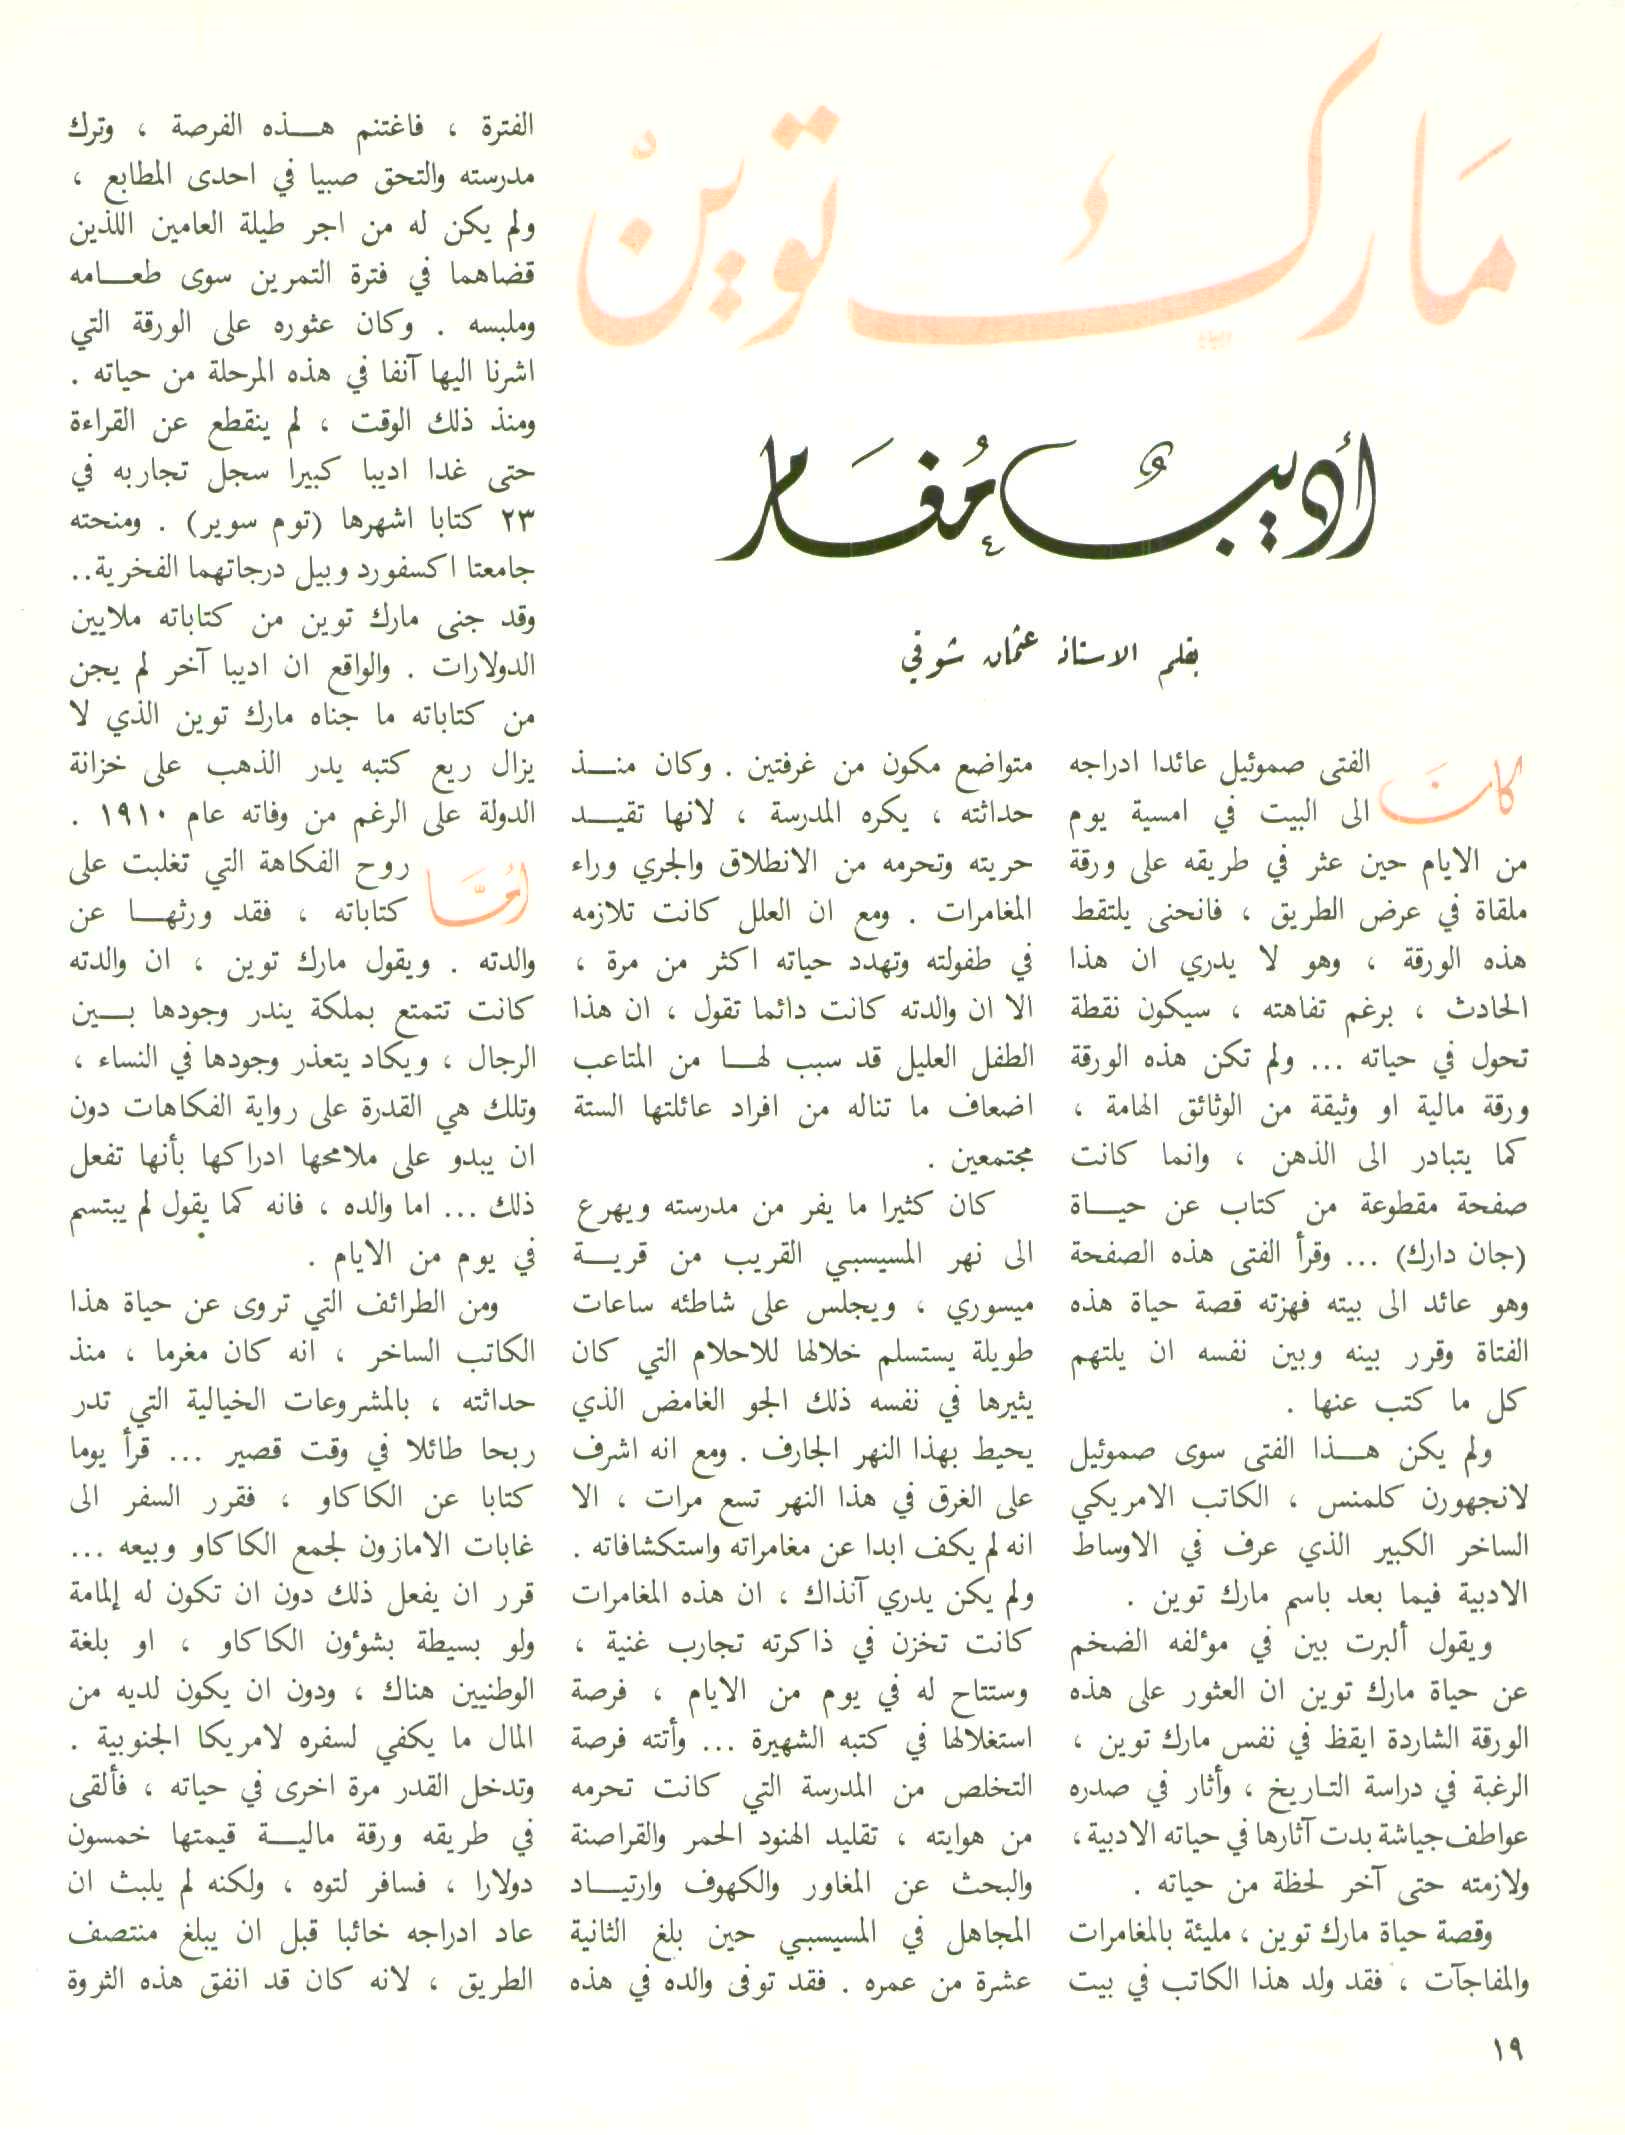 مارك توين
أديب مغامر
بقلم الاستاذ عثمان شوقي
كان الفتى صموئيل عائدا ادراجه
الى البيت في امسية يوم
من الايام حين عثر في طريقه على ورقة
ملقاة في عرض الطريق ، فانحنى يلتقط
هذه الورقة ، وهو لا يدري ان هذا
الحادث ، برغم تفاهته ، سيكون نقطة
تحول في حياته ... ولم تكن هذه الورقة
ورقة مالية او وثيقة من الوثائق الهامة ،
كما يتبادر الى الذهن ، وانما كانت
صفحة مقطوعة من كتاب عن حياة
(جان دارك) ... وقرأ الفتى هذه الصفحة
وهو عائد الى بيته فهزته قصة حياة هذه
الفتاة وقرر بينه وبين نفسه ان يلتهم
كل ما كتب عنها .
ولم يكن هذا الفتى سوى صموئيل
لانجهورن كلمنس ، الكاتب الامريكي
الساخر الكبير الذي عرف في الاوساط
الادبية فيما بعد باسم مارك توين .
ويقول ألبرت بين في مؤلفه الضخم
عن حياة مارك توين ان العثور على هذه
الورقة الشاردة ايقظ في نفس مارك توين ،
الرغبة في دراسة التاريخ ، وأثار في صدره
عواطف جياشة بدت آثارها في حياته الادبية ،
ولازمته حتى آخر لحظة من حياته .
وقصة حياة مارك توين ، مليئة بالمغامرات
والمفاجآت ، فقد ولد هذا الكاتب في بيت
متواضع مكون من غرفتين . وكان منذ
حداثته ، يكره المدرسة ، لانها تقيد
حريته وتحرمه من الانطلاق والجري وراء
المغامرات . ومع ان العلل كانت تلازمه
في طفولته وتهدد حياته اكثر من مرة ،
الا ان والدته كانت دائما تقول ، ان هذا
الطفل العليل قد سبب لها من المتاعب
اضعاف ما تناله من افراد عائلتها الستة
مجتمعين .
كان كثيرا ما يفر من مدرسته ويهرع
الى نهر المسيسبي القريب من قرية
ميسوري ، ويجلس على شاطئه ساعات
طويلة يستسلم خلالها للاحلام التي كان
يثيرها في نفسه ذلك الجو الغامض الذي
يحيط بهذا النهر الجارف . ومع انه اشرف
على الغرق في هذا النهر تسع مرات ، الا
انه لم يكف ابدا عن مغامراته واستكشافاته .
ولم يكن يدري آنذاك ، ان هذه المغامرات
كانت تخزن في ذاكرته تجارب غنية ،
وستتاح له في يوم من الايام ، فرصة
استغلالها في كتبه الشهيرة ... وأتته فرصة
التخلص من المدرسة التي كانت تحرمه
من هوايته ، تقليد الهنود الحمر والقراصنة
والبحث عن المغاور والكهوف وارتياد
المجاهل في المسيسبي حين بلغ الثانية
عشرة من عمره . فقد توفى والده في هذه
الفترة ، فاغتنم هذه الفرصة ، وترك
مدرسته والتحق صبيا في احدى المطابع ،
ولم يكن له من اجر طيلة العامين اللذين
قضاهما في فترة التمرين سوى طعامه
وملبسه . وكان عثوره على الورقة التي
اشرنا اليها آنفا في هذه المرحلة من حياته .
ومنذ ذلك الوقت ، لم ينقطع عن القراءة
حتى غدا اديبا كبيرا سجل تجاربه في
٢٣ كتابا اشهرها (توم سوير) . ومنحته
جامعتا اكسفورد وبيل درجاتهما الفخرية..
وقد جنى مارك توين من كتاباته ملايين
الدولارات . والواقع ان اديبا آخر لم يجن
من كتاباته ما جناه مارك توين الذي لا
يزال ريع كتبه يدر الذهب على خزانة
الدولة على الرغم من وفاته عام ١٩١٠ .
أما روح الفكاهة التي تغلبت على
كتاباته ، فقد ورثها عن
والدته . ويقول مارك توين ، ان والدته
كانت تتمتع بملكة يندر وجودها بين
الرجال ، ويكاد يتعذر وجودها في النساء ،
وتلك هي القدرة على رواية الفكاهات دون
ان يبدو على ملامحها ادراكها بأنها تفعل
ذلك ... اما والده ، فانه كما يقول لم يبتسم
في يوم من الايام .
ومن الطرائف التي تروى عن حياة هذا
الكاتب الساخر ، انه كان مغرما ، منذ
حداثته ، بالمشروعات الخيالية التي تدر
ربحا طائلا في وقت قصير ... قرأ يوما
كتابا عن الكاكاو ، فقرر السفر الى
غابات الامازون لجمع الكاكاو وبيعه ...
قرر ان يفعل ذلك دون ان تكون له إلمامة
ولو بسيطة بشؤون الكاكاو ، او بلغة
الوطنيين هناك ، ودون ان يكون لديه من
المال ما يكفي لسفره لامريكا الجنوبية .
وتدخل القدر مرة اخرى في حياته ، فألقى
في طريقه ورقة مالية قيمتها خمسون
دولارا ، فسافر لتوه ، ولكنه لم يلبث ان
عاد ادراجه خائبا قبل ان يبلغ منتصف
الطريق ، لانه كان قد انفق هذه الثروة
١٩